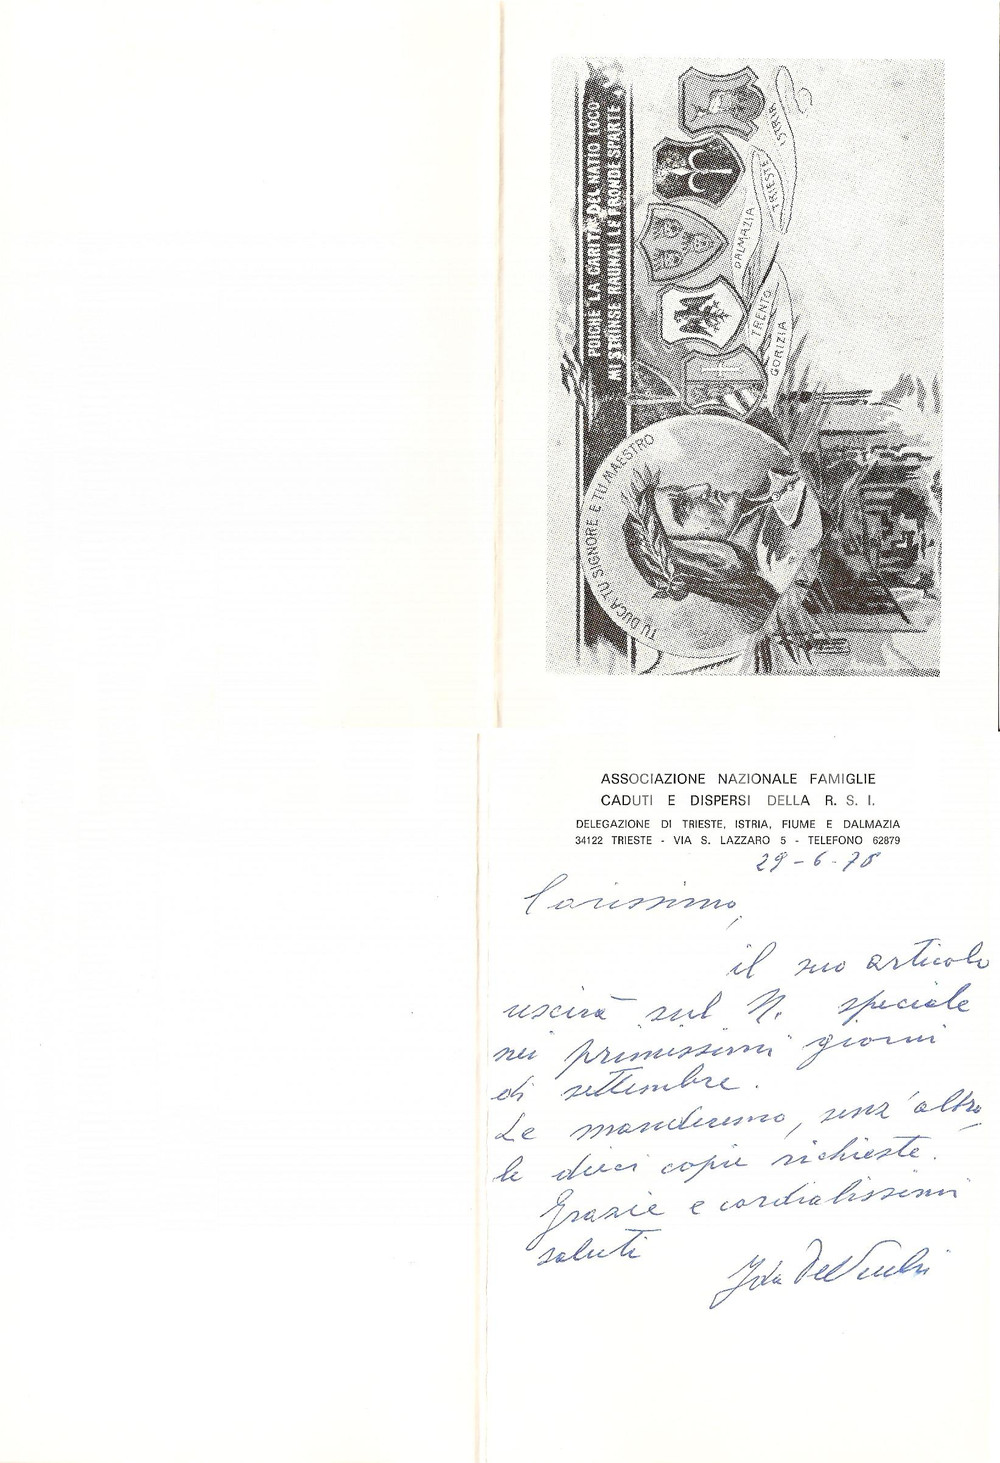 POICHE LA CARITA DEL NATIO LOCO
MI STRINSE RAUNAI LE FRONDE SPARTE
ISTRIA
TRIESTE
DALMAZIA
TRENTO
GORIZIA
TU DUCA TU SIGNORE E TU MAESTRO
ASSOCIAZIONE NAZIONALE FAMIGLIE
CADUTI E DISPERSI DELLA R. S. I.
DELEGAZIONE DI TRIESTE, ISTRIA, FIUME E DALMAZIA
34122 TRIESTE - VIA S. LAZZARO 5 - TELEFONO 62879
29-6-78
Carissimo,
il suo articolo
uscirà sul N. speciale
nei primissimi giorni
di settembre.
Le manderemo, senz'altro,
le dieci copie richieste.
Grazie e cordialissimi
saluti